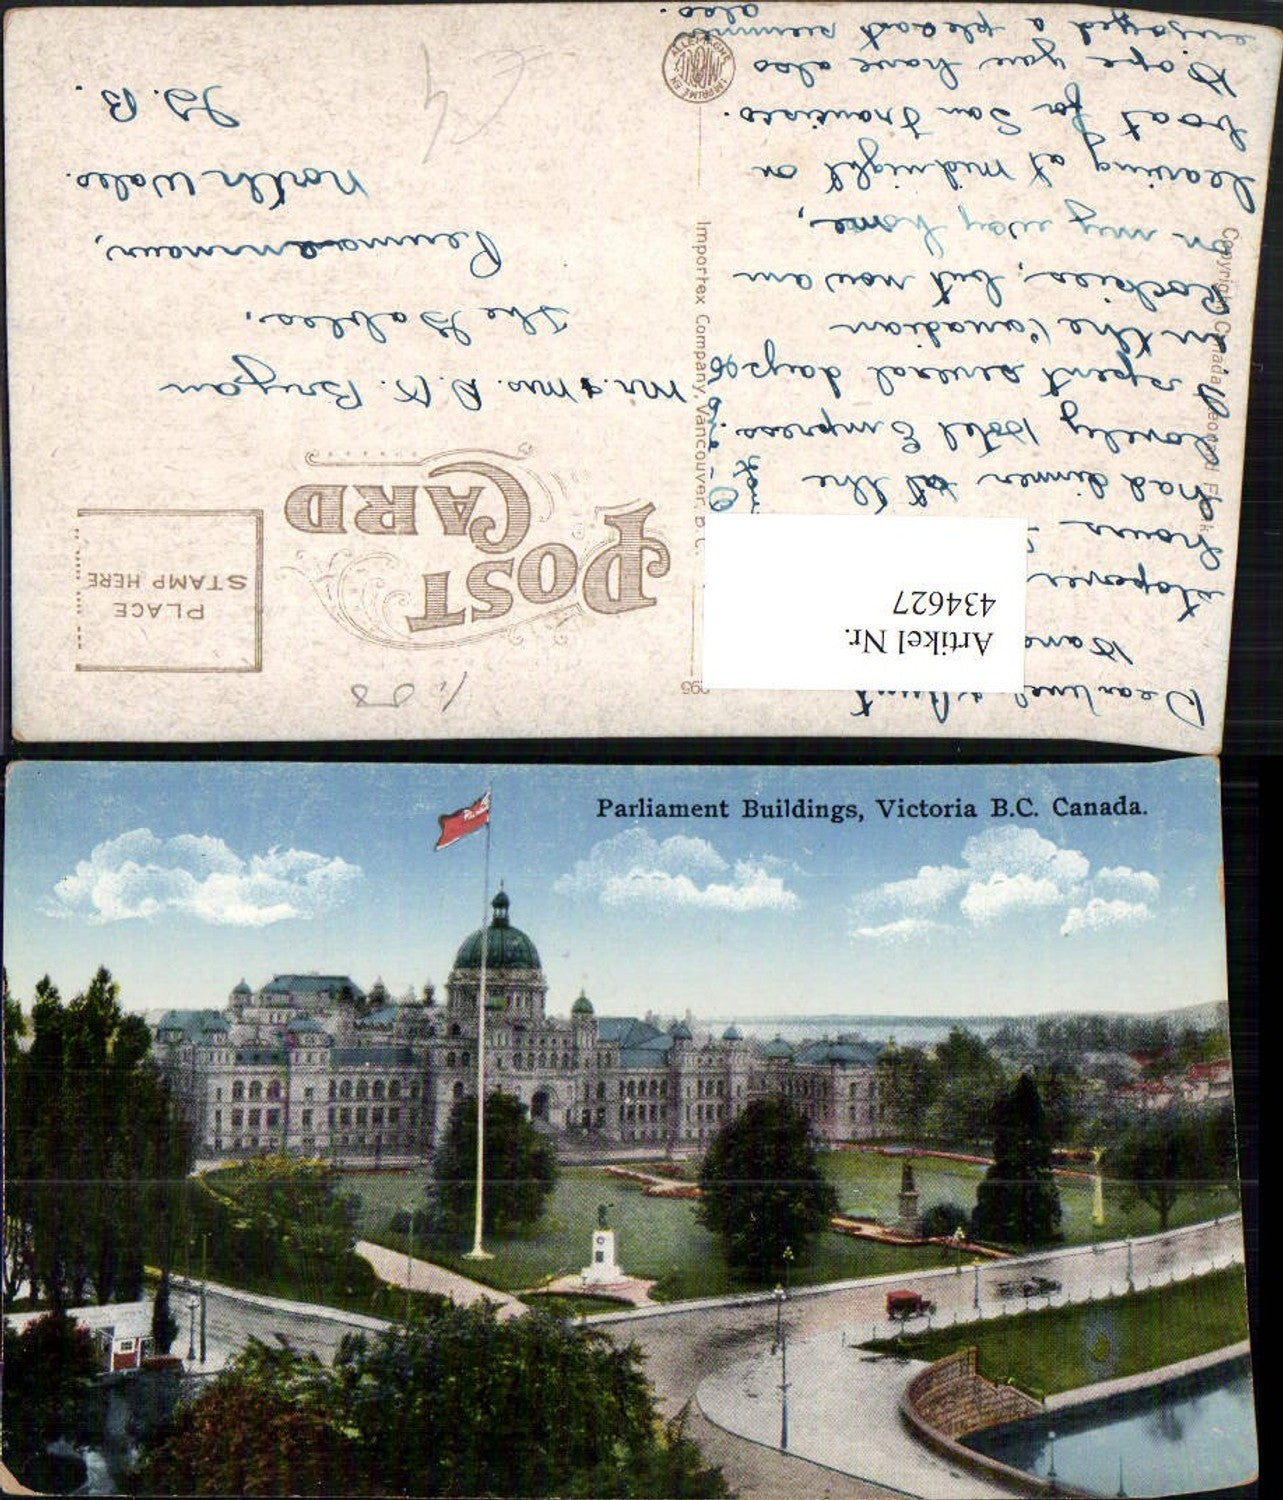 Dear Uncle & Aunt
stopover
hours -
had dinner at the
lovely Hotel Empress.
I spent several days
in the Canadian
Rockies, but now am
on my way home,
leaving at midnight on
boat for San Francisco.
Hope you have also
enjoyed a pleasant summer
also.
POST
CARD
PLACE
STAMP HERE
Mr. & Mrs. D. W. Bryan
The Gables,
Penmaenmawr,
North Wales.
G. B.
1.00
Importex Company, Vancouver, B.C.
Copyright Canada
ALLEMAGNE
IMPRIMÉ EN
Artikel Nr.
434627
Parliament Buildings, Victoria B.C. Canada.